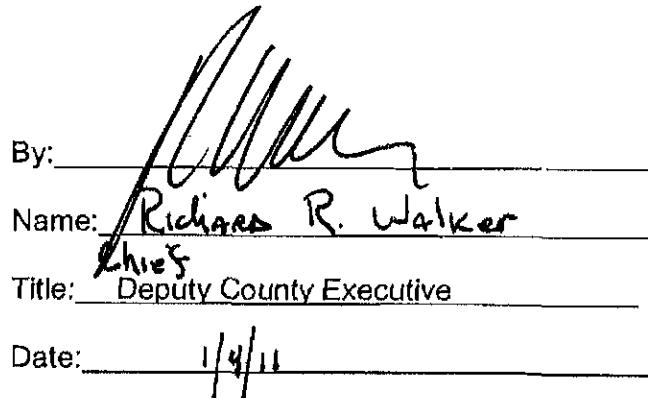 By:
Name: Richard R. Walker
Chief
Title: Deputy County Executive
Date: 1/4/11